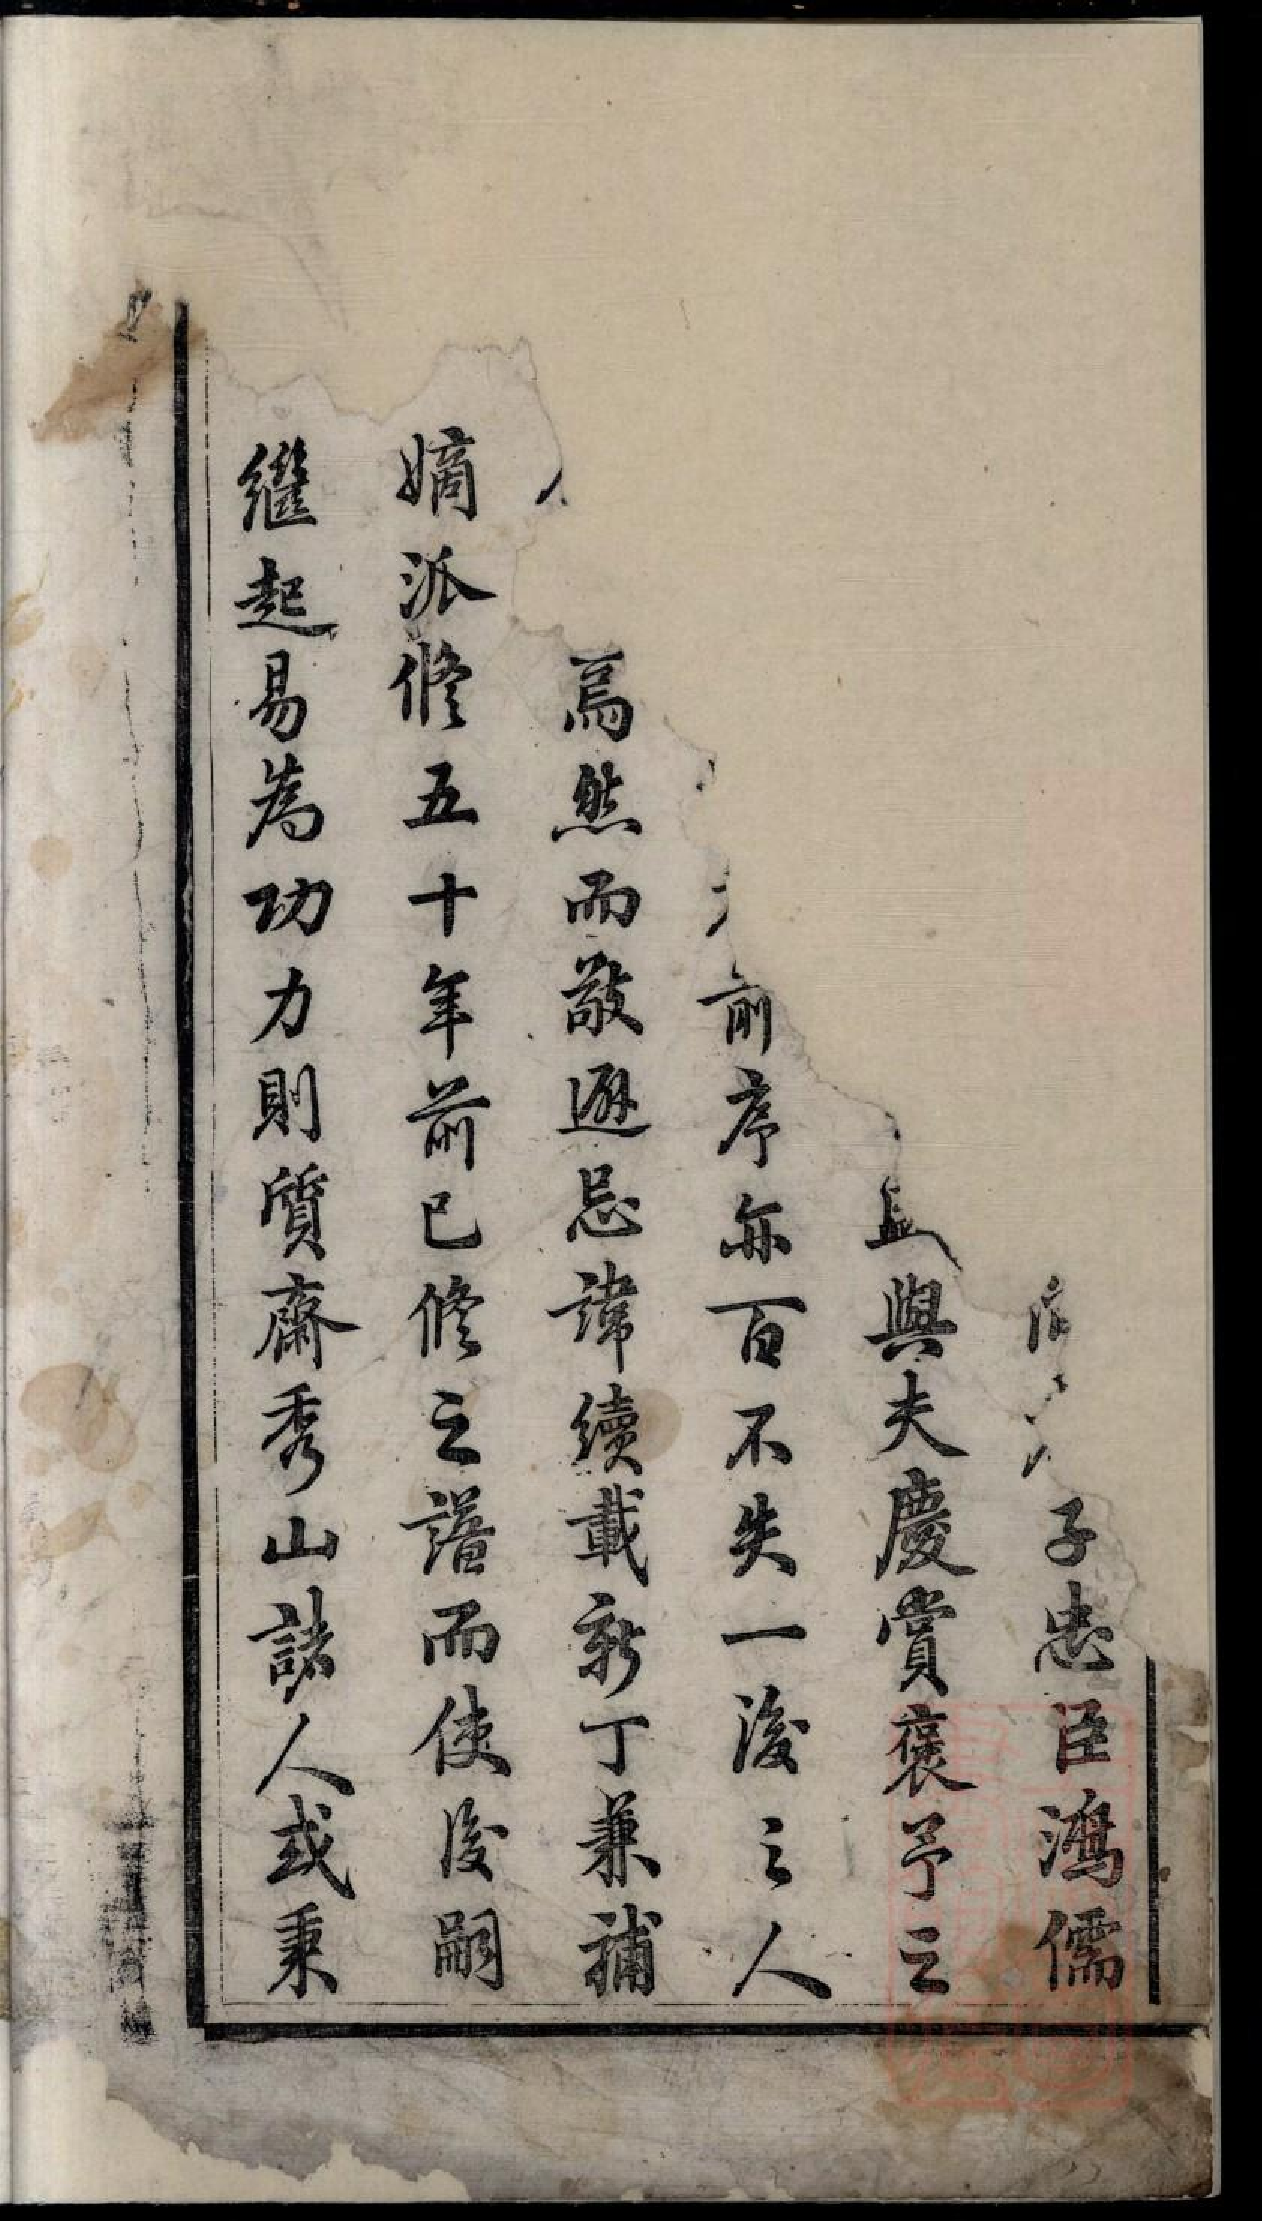 子忠臣鴻儒
與夫慶賞褒予之
前序亦百不失一後之人
焉然而敬避忌諱續載新丁兼補
嫡派修五十年前已修之譜而使後嗣
繼起易為功力則質齋秀山諸人或秉